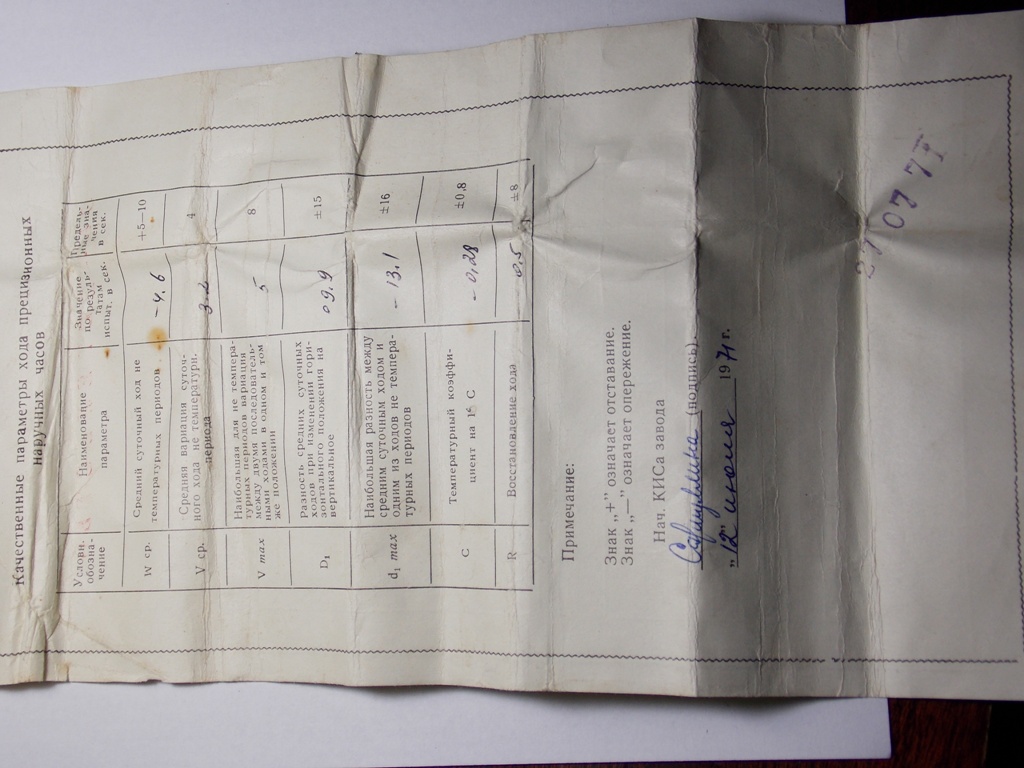 Качественные параметры хода прецизионных
наручных часов
Условн.
обозна-
чение
Наименование
параметра
Значение
по резуль-
татам
испыт. в сек.
Предель-
ные зна-
чения
в сек.
W ср.
Средний суточный ход не
температурных периодов
-4.6
+5—10
V ср.
Средняя вариация суточ-
ного хода не температурн.
периода
3.2
4
V max
Наибольшая для не темпера-
турных периодов вариация
между двумя последователь-
ными ходами в одном и том
же положении
5
8
D₁
Разность средних суточных
ходов при изменении гори-
зонтального положения на
вертикальное
09.9
±15
d₁ max
Наибольшая разность между
средним суточным ходом и
одним из ходов не темпера-
турных периодов
- 13.1
±16
C
Температурный коэффи-
циент на 1° С
- 0,28
±0,8
R
Восстановление хода
0,5
±8
Примечание:
Знак „+" означает отставание.
Знак „—" означает опережение.
Нач. КИСа завода
(подпись)
„12" июля 1971 г.